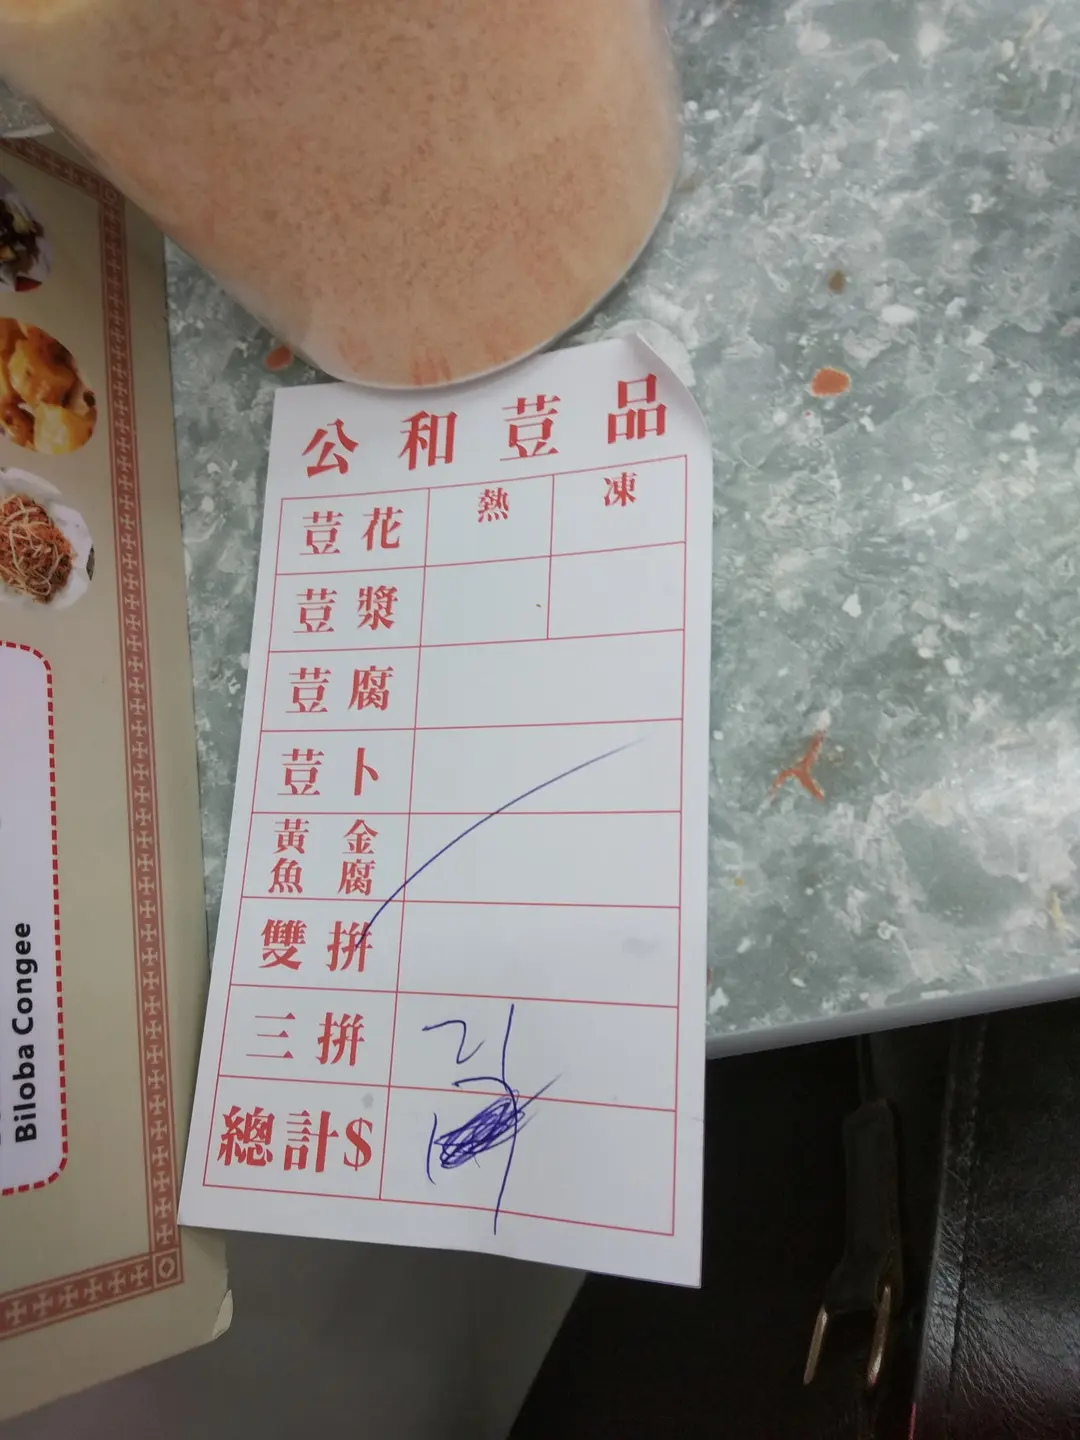 公和荳品
荳花 熱 凍
荳漿
荳腐
荳卜
黃金
魚腐
雙拼
三拼
總計$
Biloba Congee